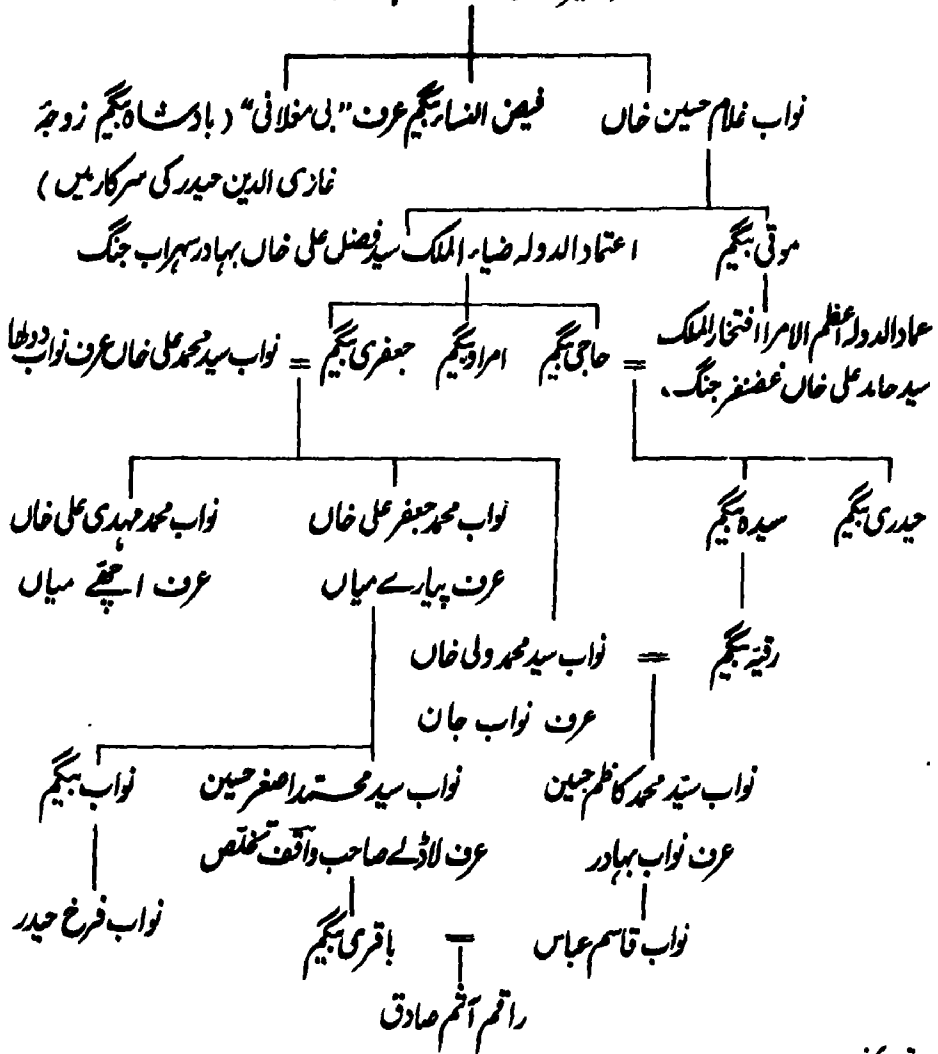 نواب غلام حسین خاں فیض النساء بیگم عرف "بی مغلانی" (بادشاہ بیگم زوجۂ
غازی الدین حیدر کی سرکار میں)
موتی بیگم اعتماد الدولہ ضیاء الملک سید فضل علی خاں بہادر سہراب جنگ
عماد الدولہ اعظم الامرا افتخار الملک
سید حامد علی خاں غضنفر جنگ، = حاجی بیگم امراؤ بیگم جعفری بیگم = نواب سید محمد علی خاں عرف نواب دولھا
حیدری بیگم سیدہ بیگم نواب محمد جعفر علی خاں نواب محمد مہدی علی خاں
عرف پیارے میاں عرف اچھے میاں
رقیہ بیگم = نواب سید محمد ولی خاں
عرف نواب جان
نواب سید محمد کاظم حسین نواب سید محمد اصغر حسین نواب بیگم
عرف نواب بہادر عرف لاڈلے صاحب واقف تخلص
نواب قاسم عباس = باقری بیگم نواب فرخ حیدر
راقم آثم صادق